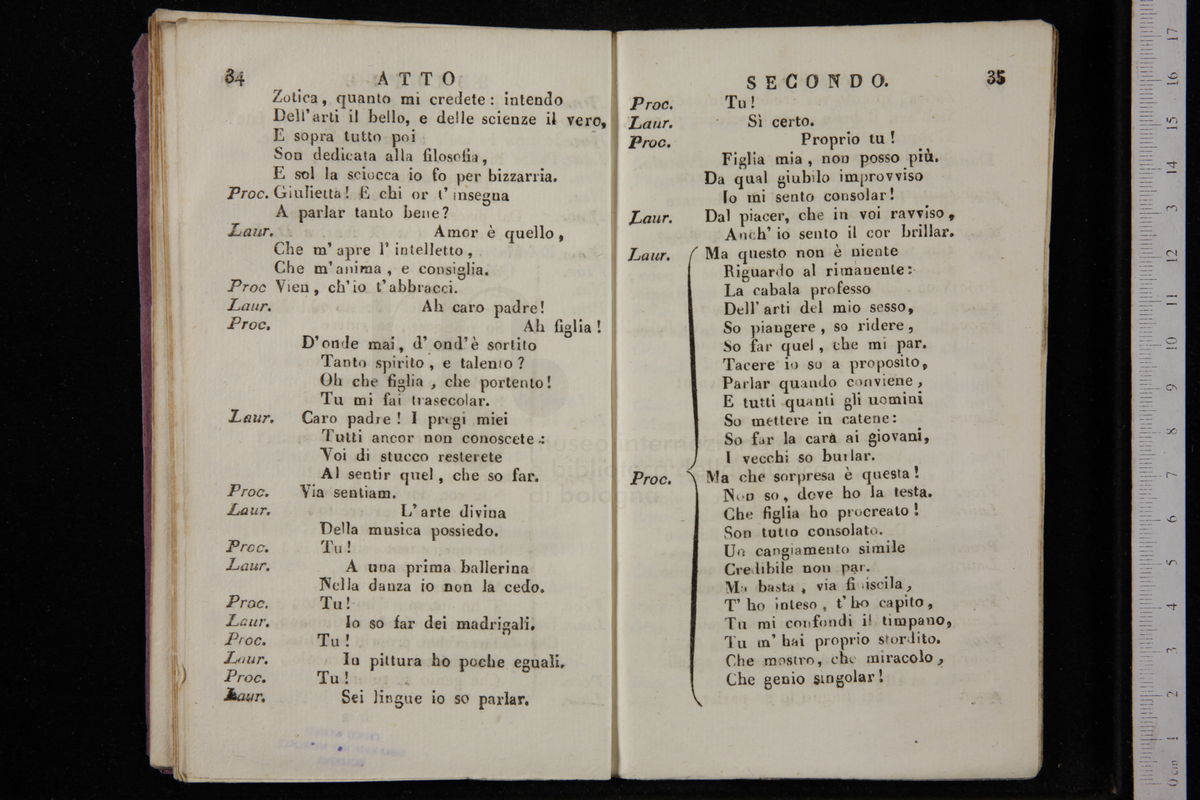 34 ATTO
Zotica, quanto mi credete: intendo
Dell'arti il bello, e delle scienze il vero,
E sopra tutto poi
Son dedicata alla filosofia,
E sol la sciocca io fo per bizzarria.
Proc. Giulietta! E chi or t'insegna
A parlar tanto bene?
Laur. Amor è quello,
Che m'apre l'intelletto,
Che m'anima, e consiglia.
Proc Vien, ch'io t'abbracci.
Laur. Ah caro padre!
Proc. Ah figlia!
D'onde mai, d'ond'è sortito
Tanto spirito, e talento?
Oh che figlia, che portento!
Tu mi fai trasecolar.
Laur. Caro padre! I pregi miei
Tutti ancor non conoscete:
Voi di stucco resterete
Al sentir quel, che so far.
Proc. Via sentiam.
Laur. L'arte divina
Della musica possiedo.
Proc. Tu!
Laur. A una prima ballerina
Nella danza io non la cedo.
Proc. Tu!
Laur. Io so far dei madrigali.
Proc. Tu!
Laur. In pittura ho poche eguali.
Proc. Tu!
Laur. Sei lingue io so parlar.
SECONDO. 35
Proc. Tu!
Laur. Sì certo.
Proc. Proprio tu!
Figlia mia, non posso più.
Da qual giubilo improvviso
Io mi sento consolar!
Laur. Dal piacer, che in voi ravviso,
Anch'io sento il cor brillar.
Laur. Ma questo non è niente
Riguardo al rimanente:
La cabala professo
Dell'arti del mio sesso,
So piangere, so ridere,
So far quel, che mi par.
Tacere io so a proposito,
Parlar quando conviene,
E tutti quanti gli uomini
So mettere in catene:
So far la cara ai giovani,
I vecchi so burlar.
Proc. Ma che sorpresa è questa!
Non so, dove ho la testa.
Che figlia ho procreato!
Son tutto consolato.
Un cangiamento simile
Credibile non par.
Ma basta, via finiscila,
T'ho inteso, t'ho capito,
Tu mi confondi il timpano,
Tu m'hai proprio stordito.
Che mostro, che miracolo,
Che genio singolar!
museo internazionale
e biblioteca della musica
di bologna